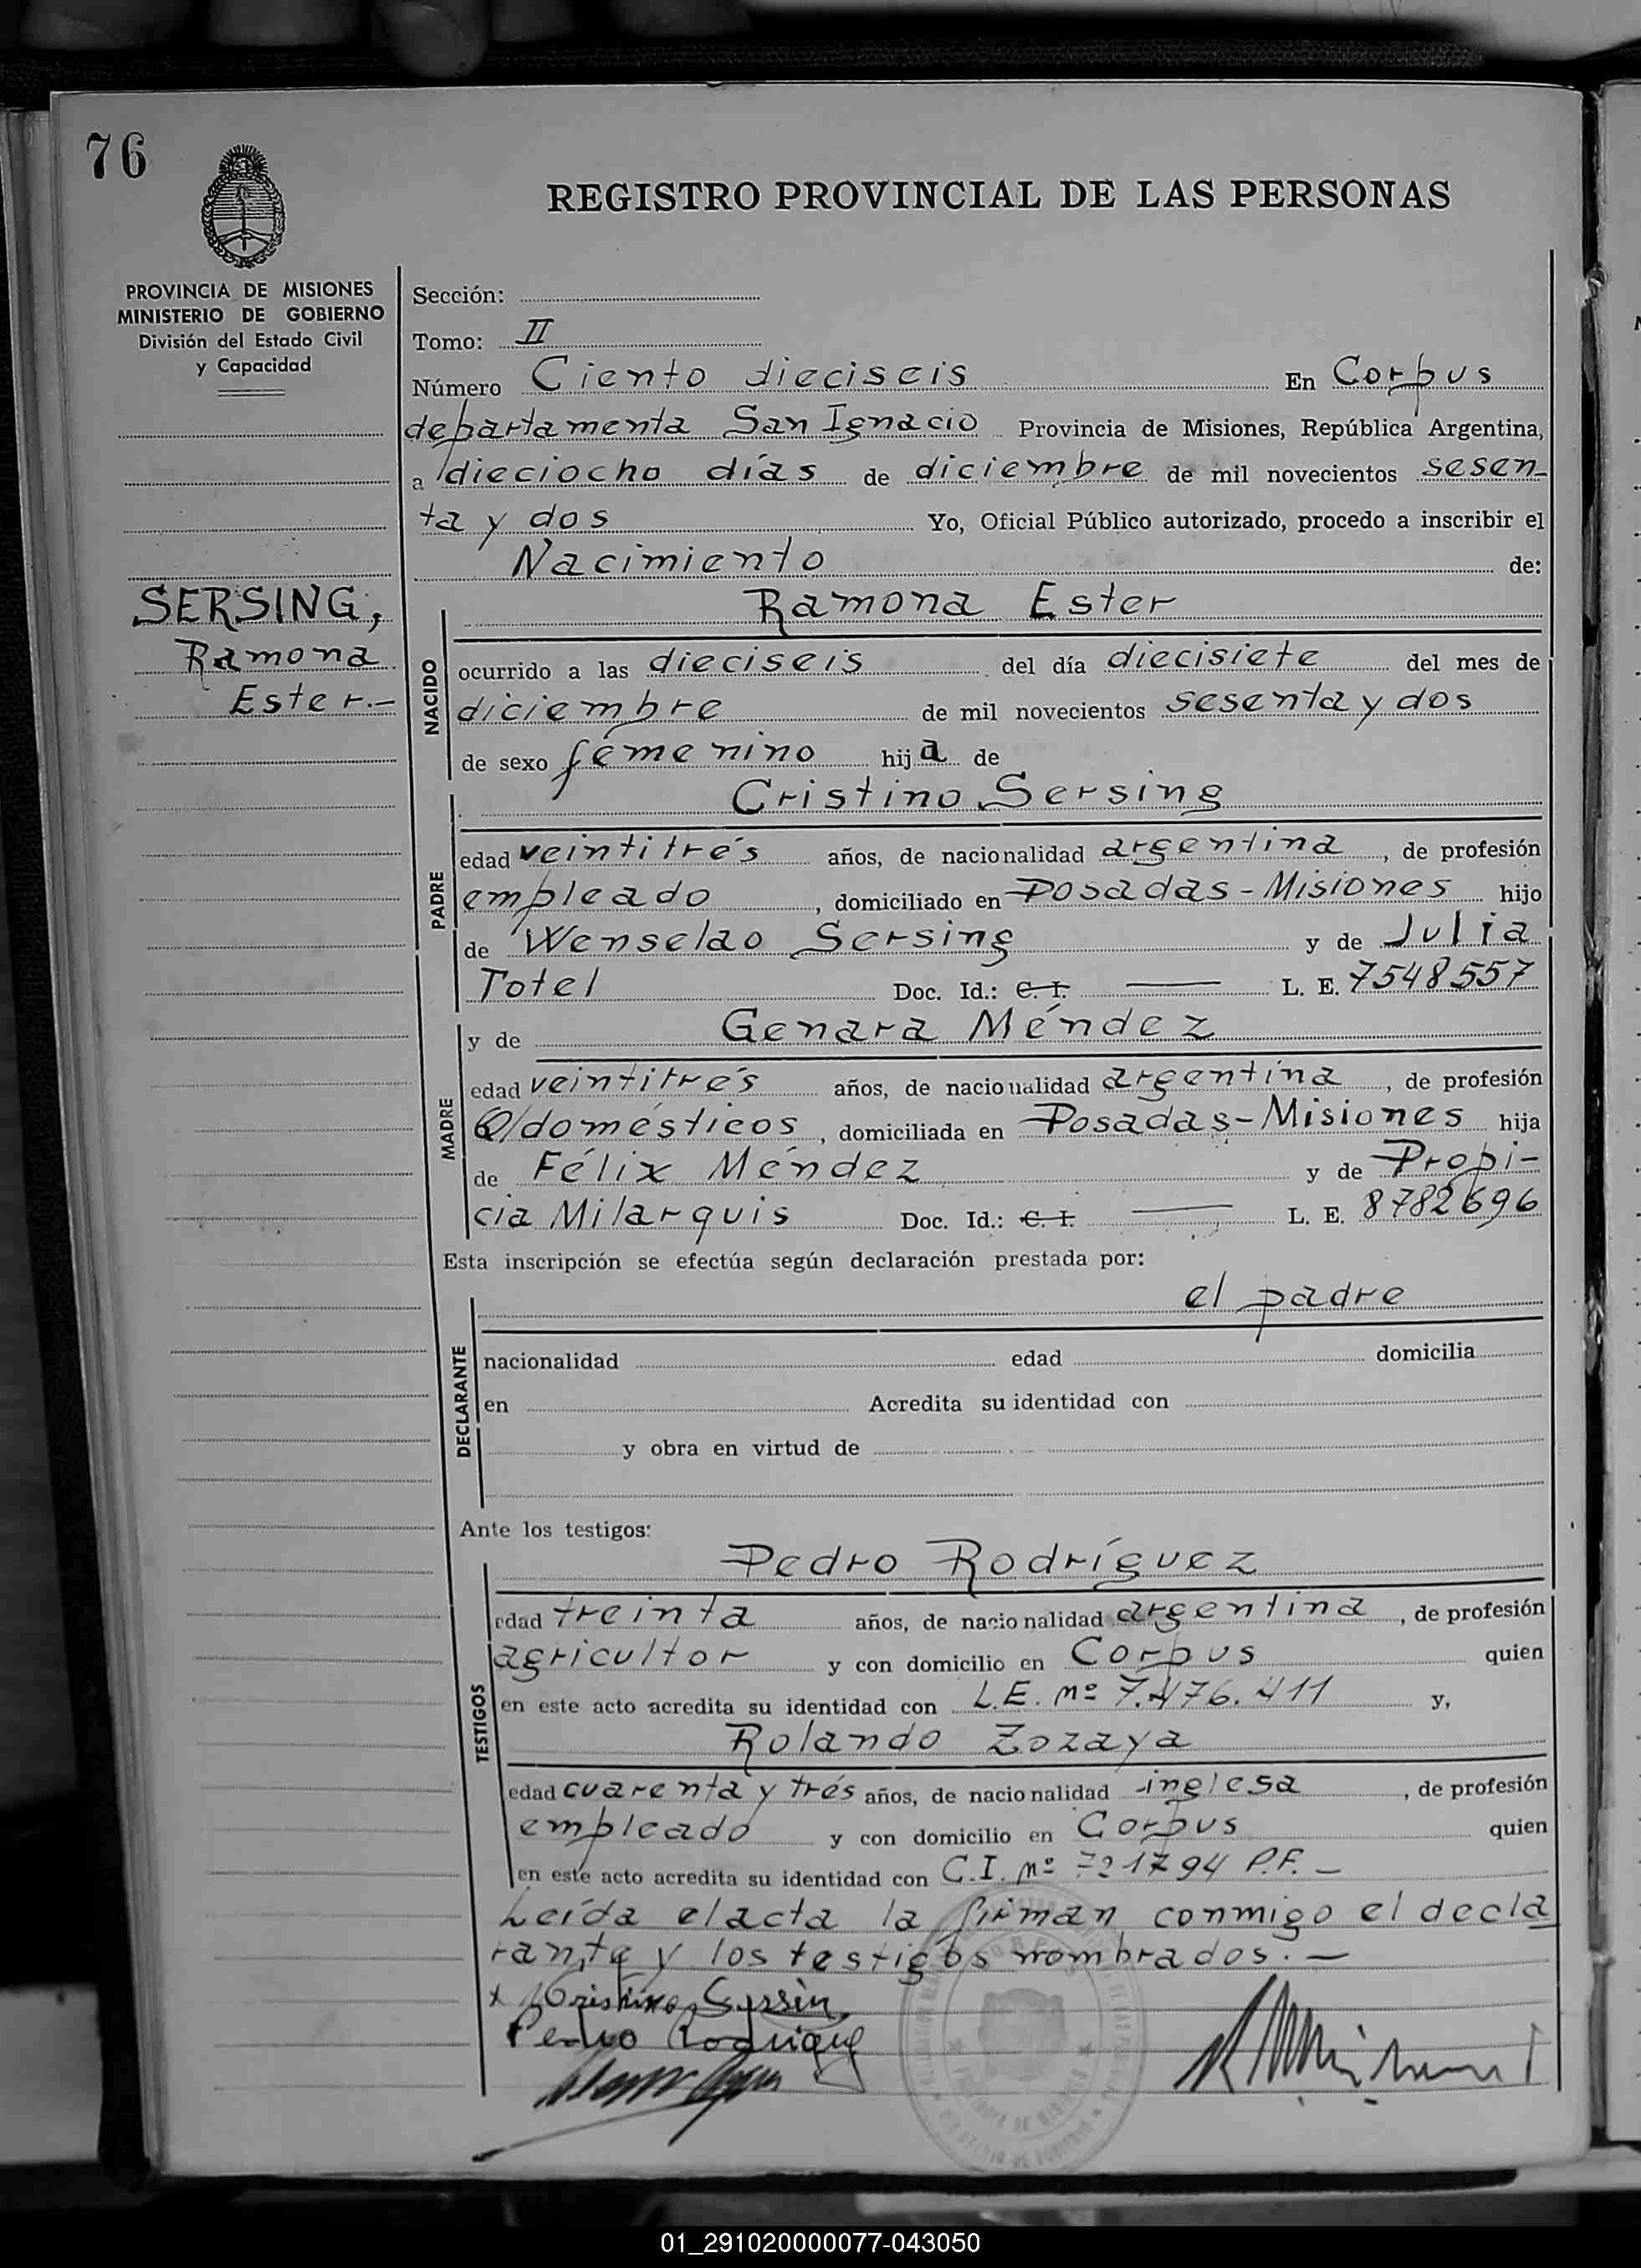 76
REGISTRO PROVINCIAL DE LAS PERSONAS
PROVINCIA DE MISIONES
MINISTERIO DE GOBIERNO
División del Estado Civil
y Capacidad
SERSING,
Ramona
Ester.-
Sección:
Tomo: II
Número Ciento dieciseis En Corpus
departamenta San Ignacio Provincia de Misiones, República Argentina,
a dieciocho días de diciembre de mil novecientos sesen-
ta y dos Yo, Oficial Público autorizado, procedo a inscribir el
Nacimiento de:
Ramona Ester
NACIDO
ocurrido a las dieciseis del día diecisiete del mes de
diciembre de mil novecientos sesenta y dos
de sexo femenino hija de
Cristino Sersing
PADRE
edad veintitrés años, de nacionalidad argentina, de profesión
empleado, domiciliado en Posadas-Misiones hijo
de Wenselao Sersing y de Julia
Totel Doc. Id.: C. I. — L. E. 7548557
y de Genara Méndez
MADRE
edad veintitrés años, de nacionalidad argentina, de profesión
Q/domésticos, domiciliada en Posadas-Misiones hija
de Félix Méndez y de Propi-
cia Milarquis Doc. Id.: C. I. — L. E. 8782696
Esta inscripción se efectúa según declaración prestada por:
el padre
DECLARANTE
nacionalidad edad domicilia
en Acredita su identidad con
y obra en virtud de
Ante los testigos:
Pedro Rodríguez
TESTIGOS
edad treinta años, de nacionalidad argentina, de profesión
agricultor y con domicilio en Corpus quien
en este acto acredita su identidad con L.E. nº 7.476.411 y,
Rolando Zozaya
edad cuarenta y trés años, de nacionalidad inglesa, de profesión
empleado y con domicilio en Corpus quien
en este acto acredita su identidad con C.I. nº 721794 P.F.-
Leída el acta la firman conmigo el decla
rante y los testigos nombrados.-
Pedro
01_291020000077-043050